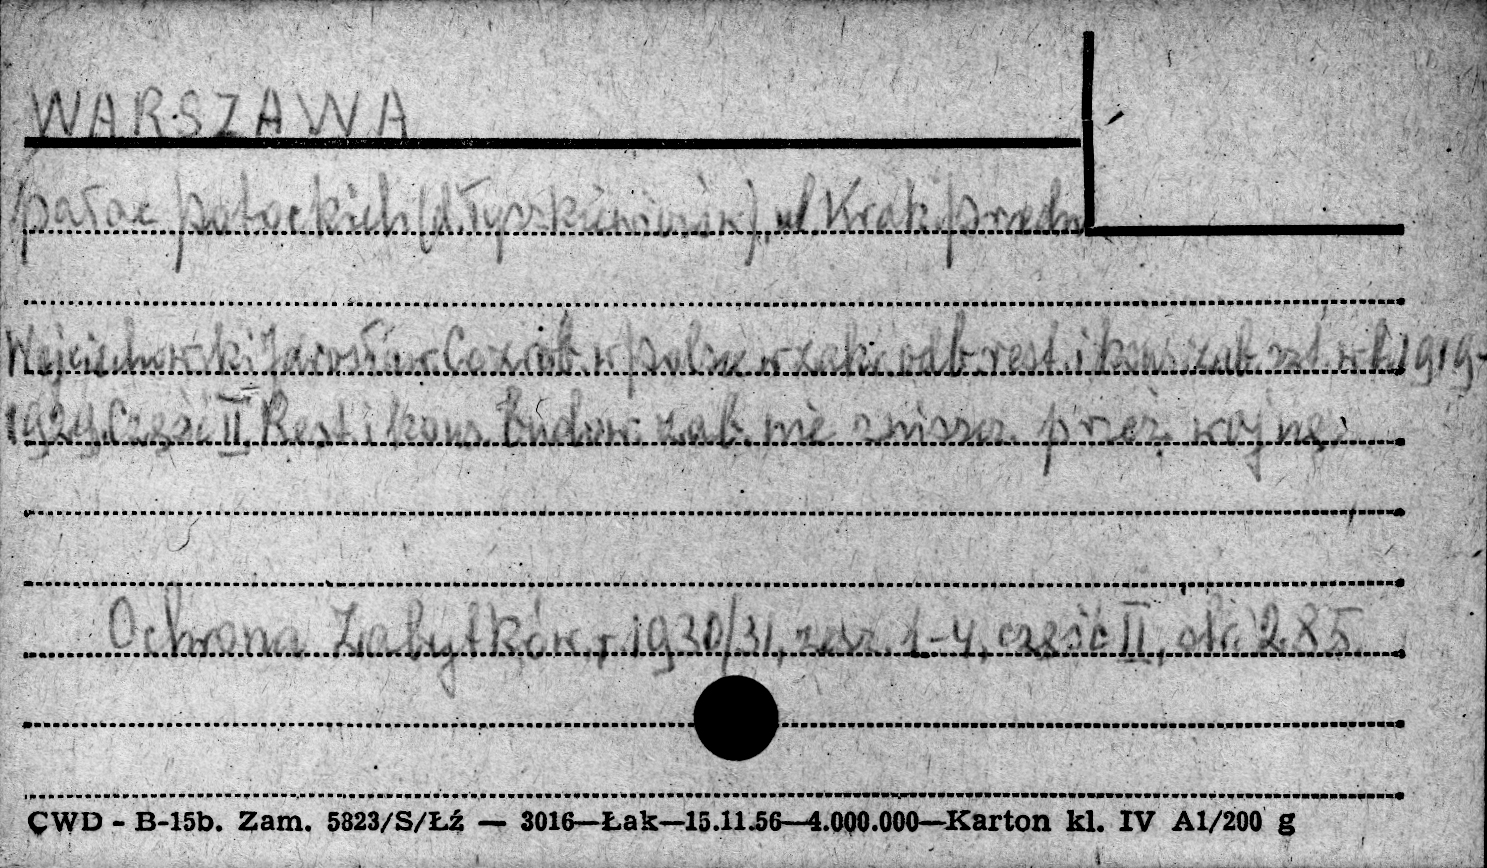 WARSZAWA
pałac potockich (d. Tyszkiewiczów), ul. Krak. przedm
Wojciechowski Jarosław Co zrob. w polsce w zakr. odb. rest. i kons. zab. szt. w l. 1919-
1929. Część II. Rest. i kons. budow. zab. nie zniszcz. przez. wojnę.
Ochrona Zabytków, r. 1930/31, zesz. 1-4, część II, str. 285.
CWD - B-15b. Zam. 5823/S/Łź — 3016—Łak—15.11.56—4.000.000—Karton kl. IV A1/200 g